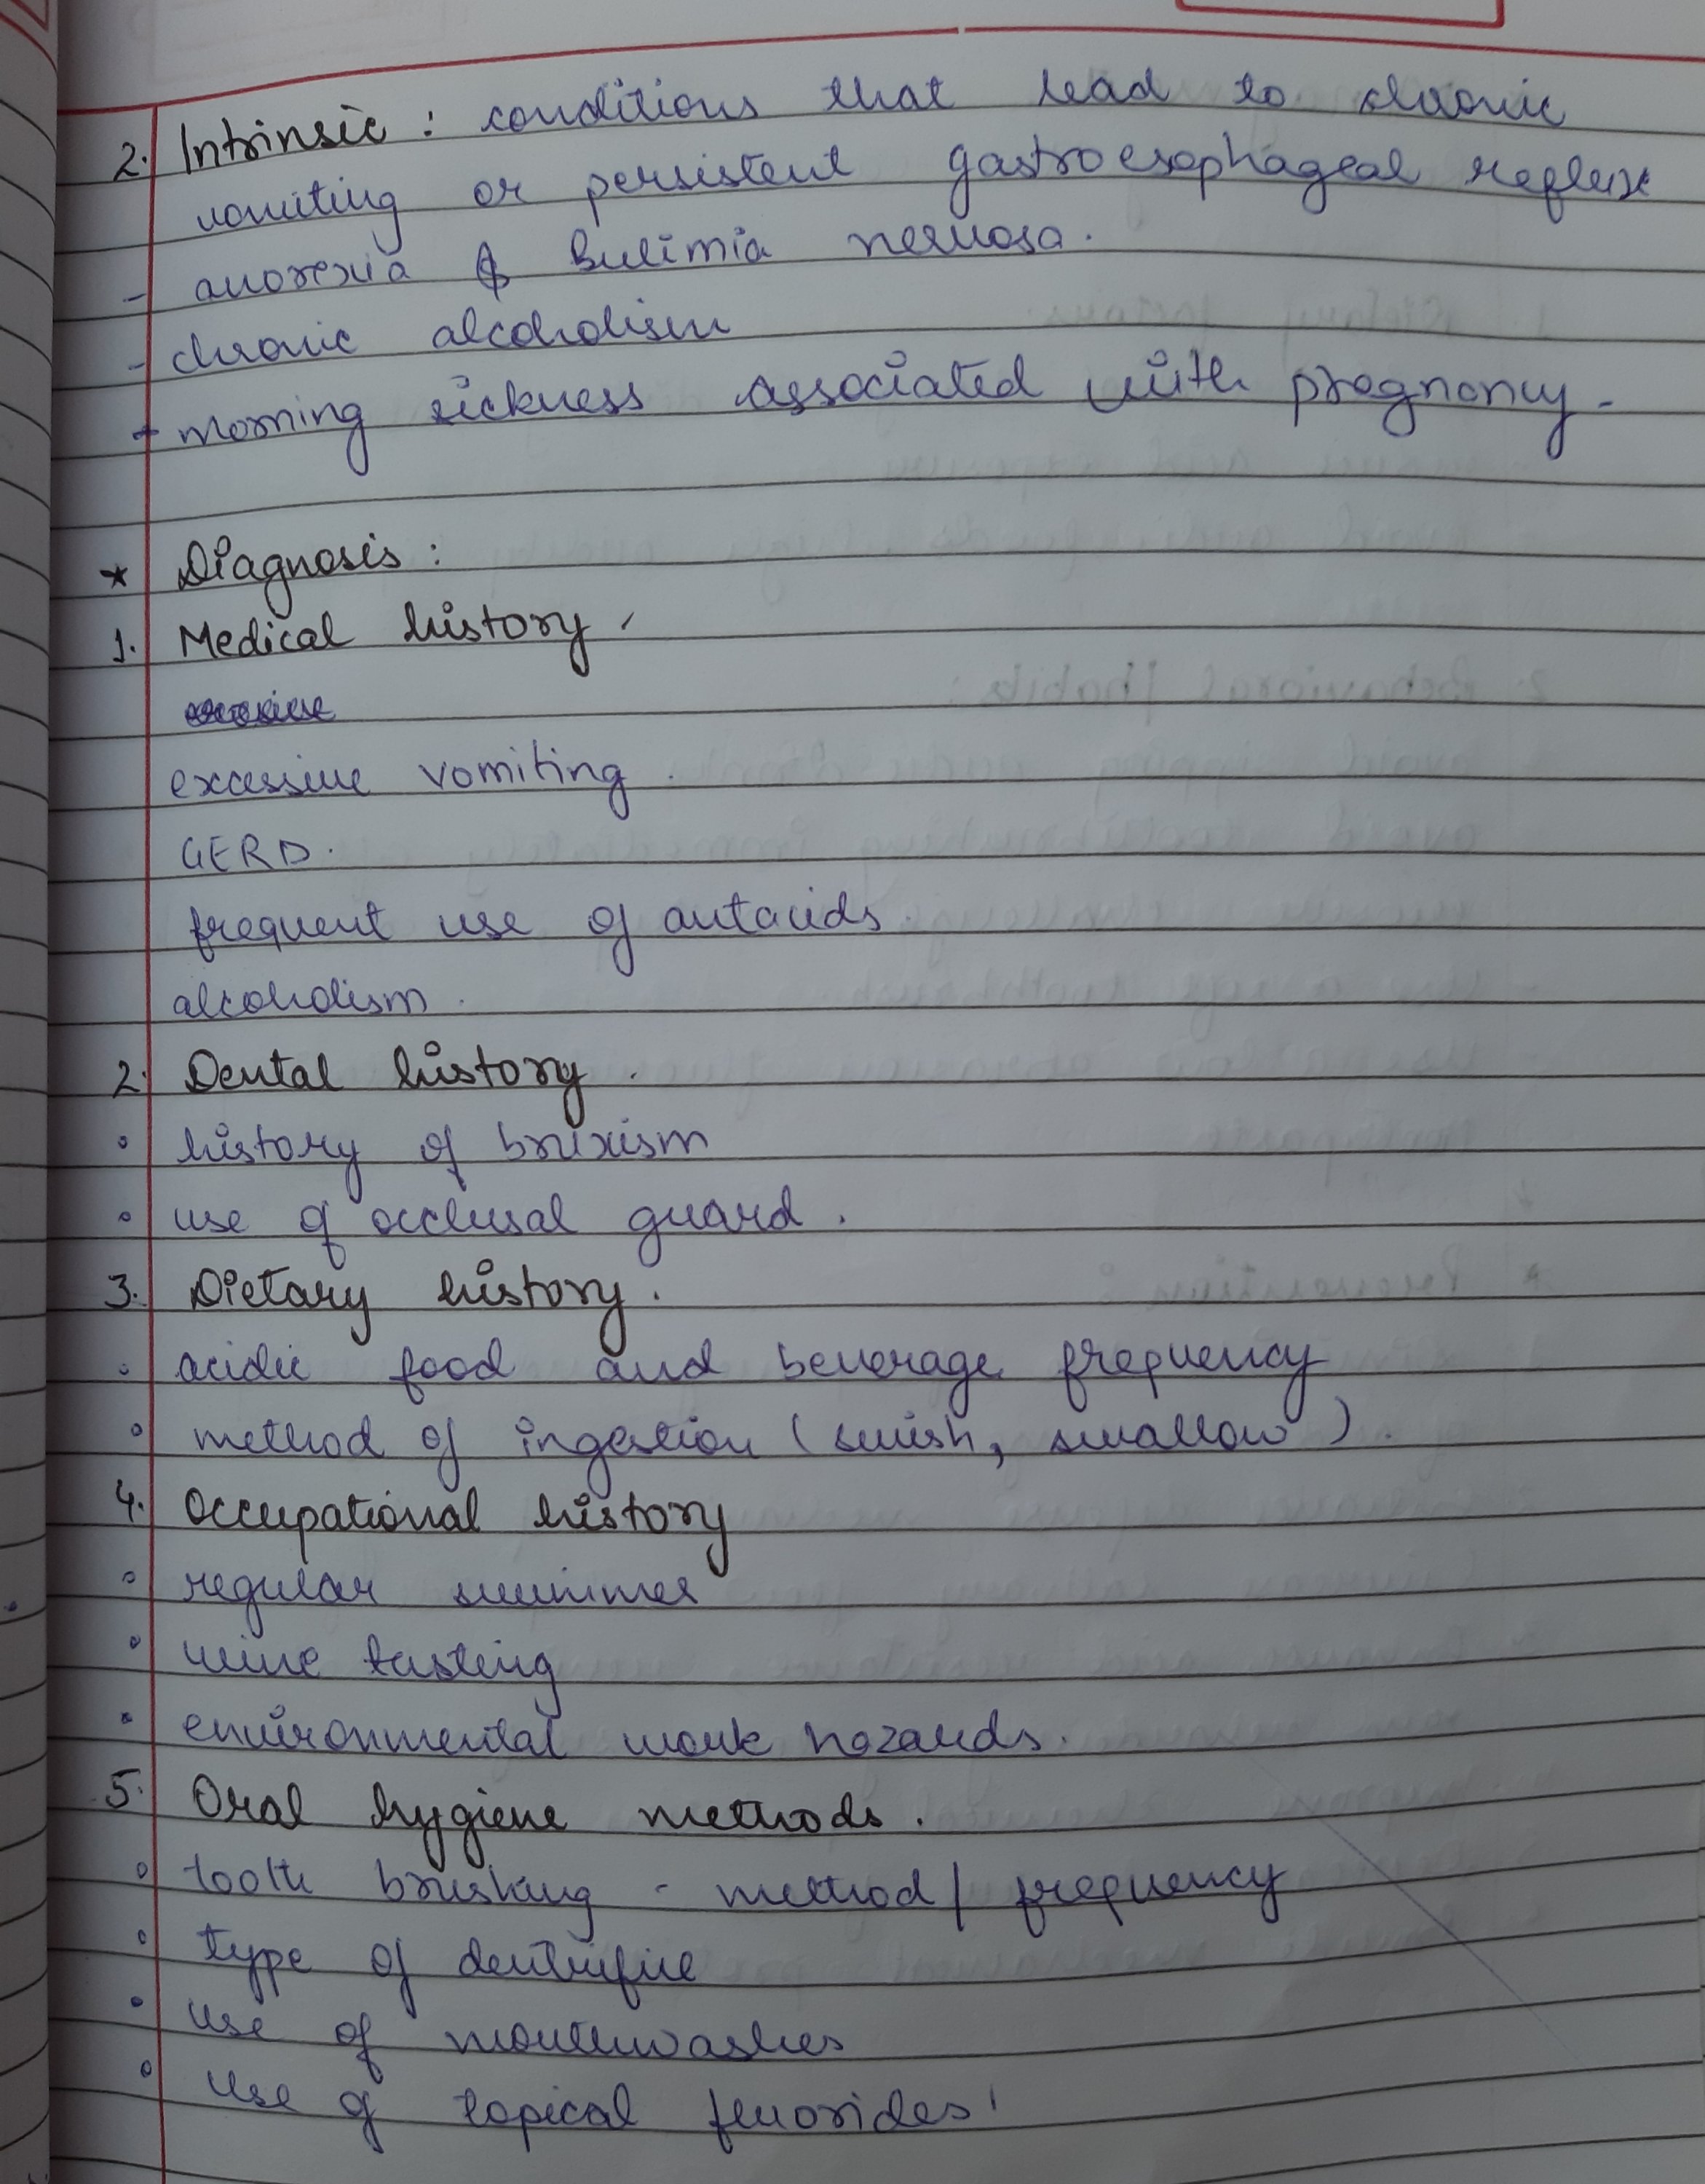 2. Intrinsic : conditions that lead to chronic
vomiting or persistent gastroesophageal reflux
- anorexia & Bulimia nervosa.
- chronic alcoholism
- morning sickness associated with pregnancy.
* Diagnosis :
1. Medical history
excessive vomiting.
GERD.
frequent use of antacids.
alcoholism.
2. Dental history.
◦ history of bruxism
◦ use of occlusal guard.
3. Dietary history.
◦ acidic food and beverage frequency
◦ method of ingestion (swish, swallow).
4. Occupational history
◦ regular swimmer
◦ wine tasting
◦ environmental work hazards.
5. Oral hygiene methods.
◦ tooth brushing - method/ frequency
◦ type of dentrifice
◦ use of mouthwashes
◦ use of topical fluorides